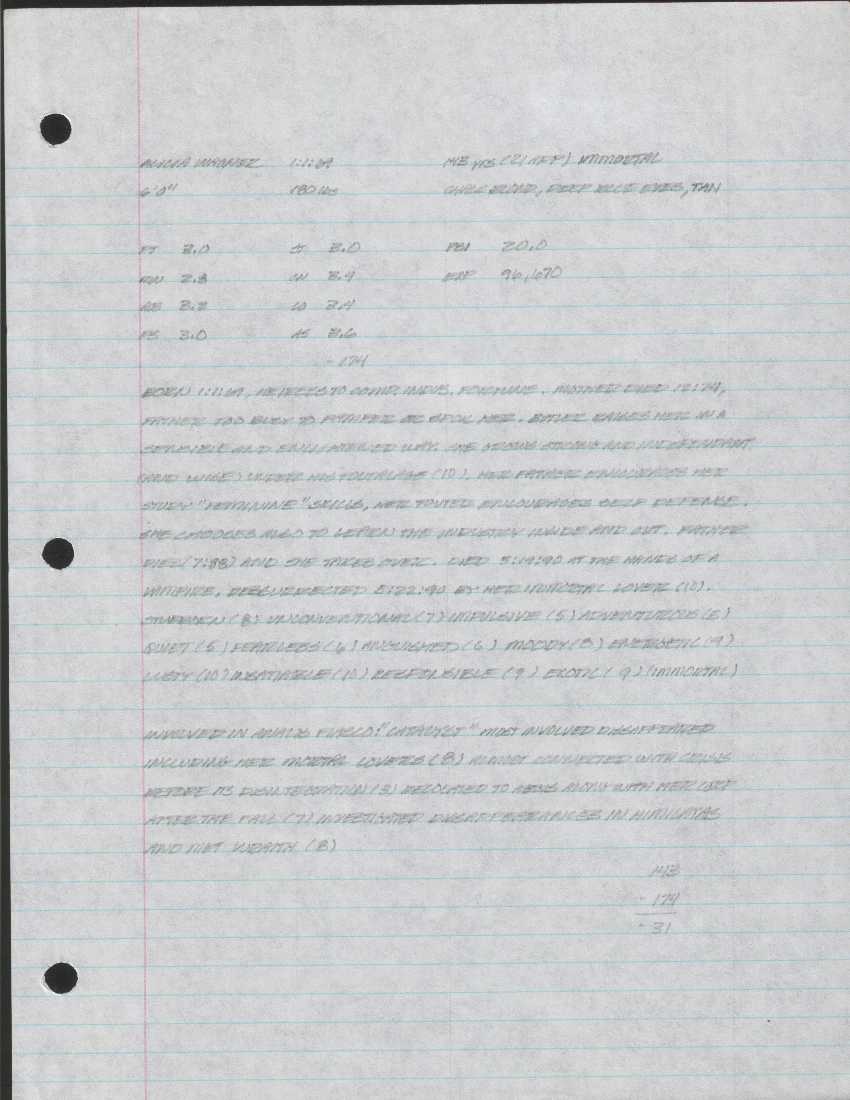 ALICIA WAGNER 1:1:69 143 YRS (21 APP) IMMORTAL
6'0" 180 LBS BLOND, DEEP BLUE EYES, TAN
FT 3.0 ST 3.0 PBI 20.0
RN 2.8 CN 3.9 EXP 96,670
AB 3.2 CO 3.4
PS 3.0 AS 3.6
- 174
BORN 1:1:69, HEIRESS TO INDUS. FORTUNE. MOTHER DIED 12:74,
FATHER TOO BUSY TO PAMPER OR SPOIL HER. BUTLER RAISES HER IN A
SENSIBLE AND ENLIGHTENED WAY. SHE GROWS STRONG AND INDEPENDANT
(AND WISE) UNDER HIS TOUTALAGE (10). HER FATHER ENCOURAGES HER
STUDY "FEMININE" SKILLS, HER TOUTED ENCOURAGES SELF DEFENSE.
SHE CHOOSES ALSO TO LEARN THE INDUSTRY INSIDE AND OUT. FATHER
DIES (7:88) AND SHE TAKES OVER. DIED 5:19:90 AT THE HANDS OF A
VAMPIRE, RESSURRECTED 5:22:90 BY HER IMMORTAL LOVER (10).
STUBBORN (8) UNCONVENTIONAL (7) IMPULSIVE (5) ADVENTUROUS (5)
QUIET (5) FEARLESS (6) ANGUISHED (6) MOODY (8) ENERGETIC (9)
LUSTY (10) INSATIABLE (10) RESPONSIBLE (9) EROTIC (9) (IMMORTAL)
INVOLVED IN "CATALYST" MOST INVOLVED DISAPPEARED
INCLUDING HER MORTAL LOVERS (8) ALMOST CONNECTED WITH CRISIS
BEFORE ITS DISINTEGRATION (3) RELOCATED TO ALONG WITH HER
AFTER THE FALL (7) INVESTIGATED DISAPPEARANCES IN HIMILAYAS
AND MET (8)
143
- 174
- 31